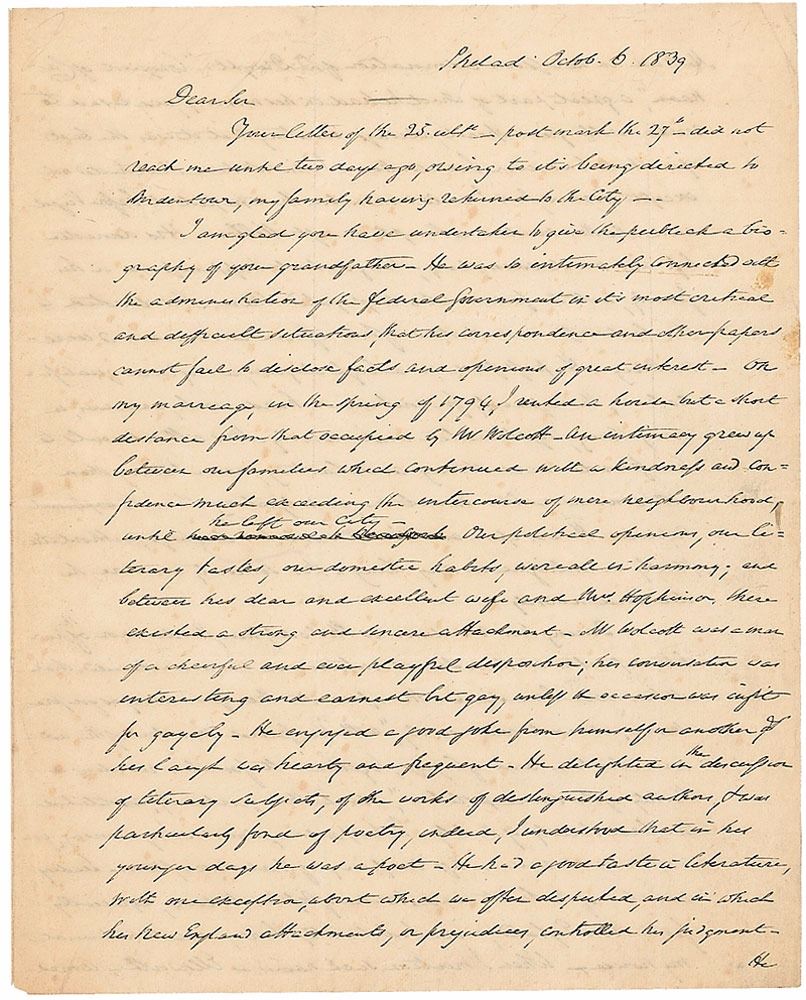 Philad: Octob. 6. 1839
Dear Sir
Your letter of the 25. ult. – post mark the 27th – did not
reach me until two days ago, owing to it's being directed to
Bordentown, my family having returned to the City –
I am glad you have undertaken to give the publick a bio=
graphy of your grandfather – He was so intimately connected with
the administration of the federal Government in it's most critical
and difficult situations, that his correspondence and other papers
cannot fail to disclose facts and opinions of great interest – On
my marriage, in the spring of 1794, I rented a house but a short
distance from that occupied by Mr Wolcott – An intimacy grew up
between our families which continued with a kindness and con=
fidence much exceeding the intercourse of mere neighbourhood,
he left our City –
until Our political opinions, our li=
terary tastes, our domestic habits, were all in harmony; and
between his dear and excellent wife and Mrs. Hopkinson, there
existed a strong and sincere attachment – Mr Wolcott was a man
of a cheerful and even playful disposition; his conversation was
interesting and earnest but gay, unless the occasion was unfit
for gayety – He enjoyed a good joke from himself or another &
his laugh was hearty and frequent – He delighted in the discussion
of literary subjects, of the works of distinguished authors, & was
particularly fond of poetry, indeed, I understood that in his
younger days he was a poet – He had a good taste in literature,
with one exception, about which we often disputed, and in which
his New England attachments, or prejudices, controlled his judgment –
He